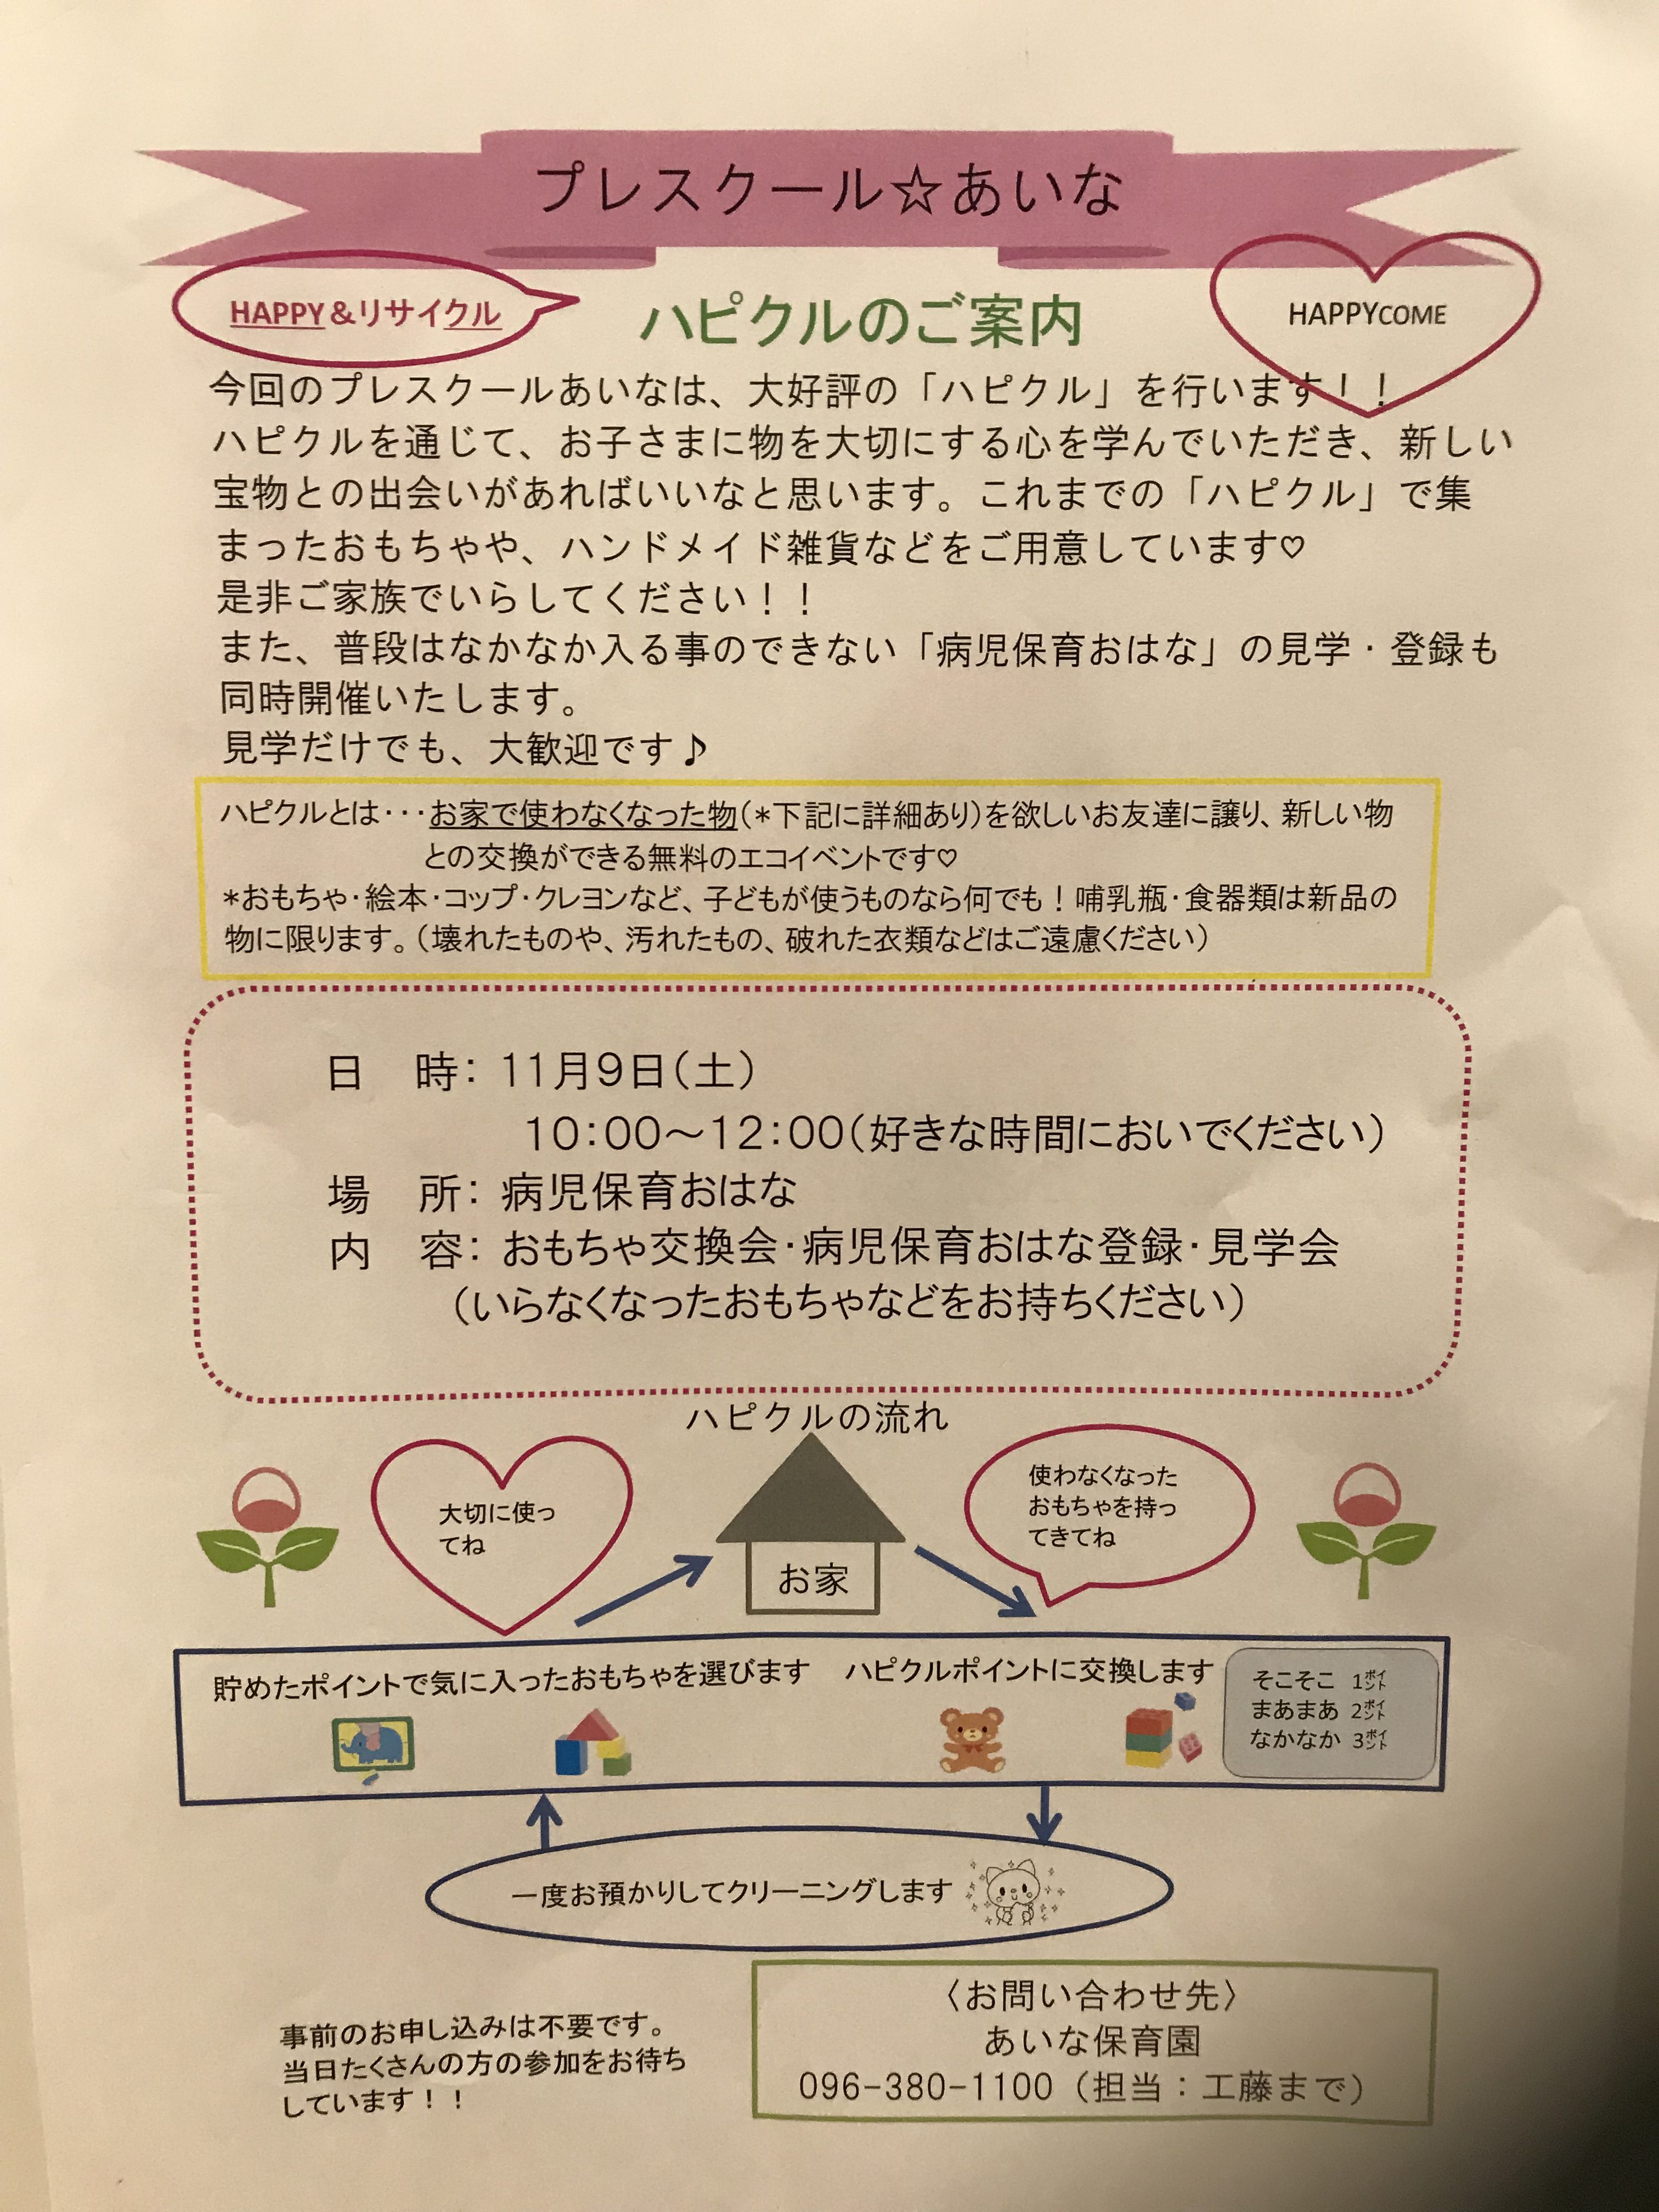 プレスクール☆あいな
HAPPY&リサイクル
ハピクルのご案内
HAPPYCOME
今回のプレスクールあいなは、大好評の「ハピクル」を行います！！
ハピクルを通じて、お子さまに物を大切にする心を学んでいただき、新しい
宝物との出会いがあればいいなと思います。これまでの「ハピクル」で集
まったおもちゃや、ハンドメイド雑貨などをご用意しています♡
是非ご家族でいらしてください！！
また、普段はなかなか入る事のできない「病児保育おはな」の見学・登録も
同時開催いたします。
見学だけでも、大歓迎です♪
ハピクルとは・・・お家で使わなくなった物（*下記に詳細あり）を欲しいお友達に譲り、新しい物
との交換ができる無料のエコイベントです♡
*おもちゃ・絵本・コップ・クレヨンなど、子どもが使うものなら何でも！哺乳瓶・食器類は新品の
物に限ります。（壊れたものや、汚れたもの、破れた衣類などはご遠慮ください）
日　時：11月9日（土）
10：00～12：00（好きな時間においでください）
場　所：病児保育おはな
内　容：おもちゃ交換会・病児保育おはな登録・見学会
（いらなくなったおもちゃなどをお持ちください）
ハピクルの流れ
大切に使っ
てね
お家
使わなくなった
おもちゃを持っ
てきてね
貯めたポイントで気に入ったおもちゃを選びます
ハピクルポイントに交換します
そこそこ 1ポイント
まあまあ 2ポイント
なかなか 3ポイント
一度お預かりしてクリーニングします
事前のお申し込みは不要です。
当日たくさんの方の参加をお待ち
しています！！
〈お問い合わせ先〉
あいな保育園
096-380-1100（担当：工藤まで）